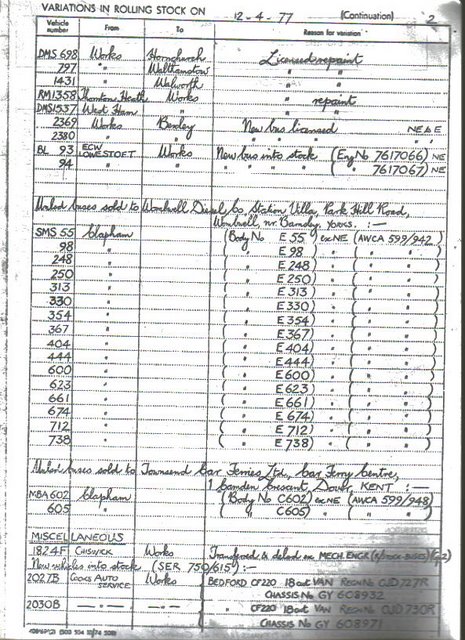 VARIATIONS IN ROLLING STOCK ON 12-4-77 (Continuation) 2
Vehicle number From To Reason for variation
DMS 698 Works Hornchurch Licensed repaint
797 " Walthamstow " "
1431 " Walworth " "
RM1358 Thornton Heath Works " repaint
DMS1537 West Ham " " "
2369 Works Bexley New bus licensed NE & E
2380 " " " " "
BL 93 ECW LOWESTOFT Works New bus into stock (Eng No 7617066) NE
94 " " " " " ( " 7617067) NE
Unlicd buses sold to Wombwell Diesel Co. Station Villa, Park Hill Road,
Wombwell, nr. Barnsley YORKS. :—
SMS 55 Clapham (Body No E 55) ex NE (AWCA 599/942)
98 " ( " E 98) " ( " " )
248 " ( " E 248) " ( " " )
250 " ( " E 250) " ( " " )
313 " ( " E 313) " ( " " )
330 " ( " E 330) " ( " " )
354 " ( " E 354) " ( " " )
367 " ( " E 367) " ( " " )
404 " ( " E 404) " ( " " )
444 " ( " E 444) " ( " " )
600 " ( " E 600) " ( " " )
623 " ( " E 623) " ( " " )
661 " ( " E 661) " ( " " )
674 " ( " E 674) " ( " " )
712 " ( " E 712) " ( " " )
738 " ( " E 738) " ( " " )
Unlicd buses sold to Townsend Car Ferries Ltd, Car Ferry Centre,
1 Camden Crescent, Dover, KENT :—
MBA 602 Clapham (Body No C602) ex NE (AWCA 599/948)
605 " ( " C605) " ( " " )
MISCELLANEOUS
1824F CHISWICK Works Transferred & deld on MECH. ENGR
New vehicles into stock (SER 750/615) :—
2027B COOKS AUTO SERVICE Works BEDFORD CF220 18 cwt VAN REGN NO OJD 727R
CHASSIS NO GY 608932
2030B — " — — " — " CF220 18 cwt VAN REGN NO OJD 730R
CHASSIS NO GY 608971